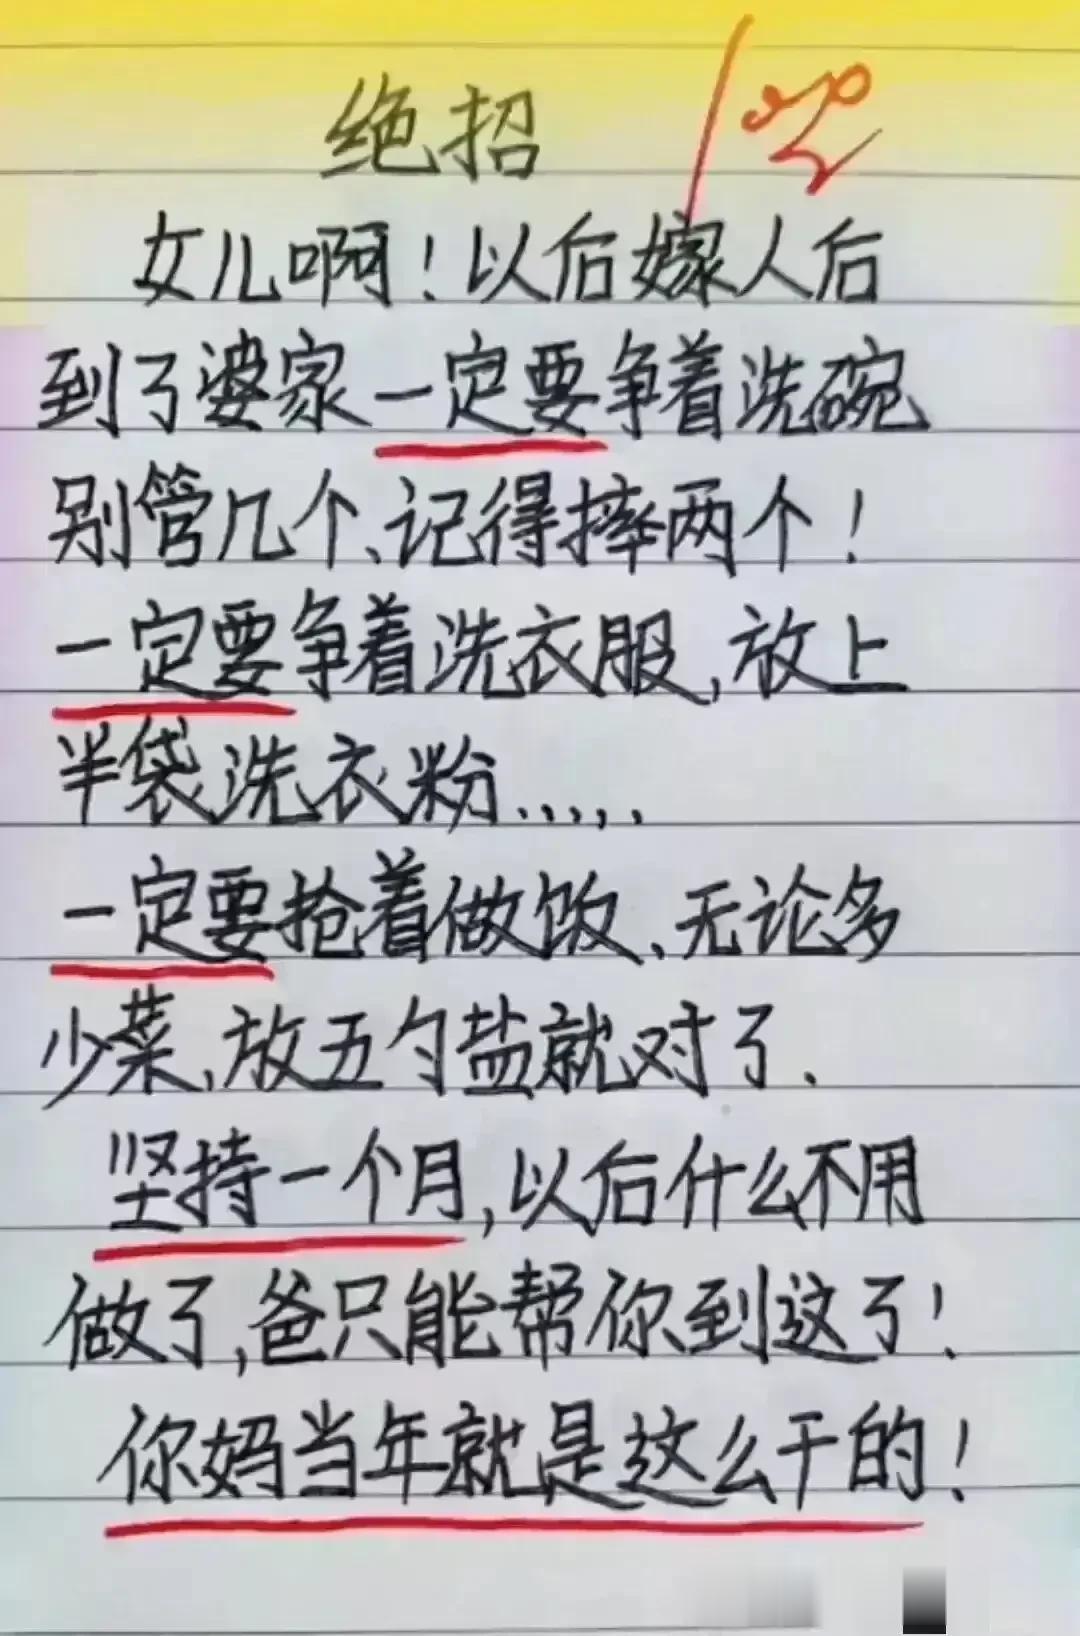 绝招
女儿啊！以后嫁人后
到了婆家一定要争着洗碗
别管几个、记得摔两个！
一定要争着洗衣服，放上
半袋洗衣粉.....
一定要抢着做饭、无论多
少菜，放五勺盐就对了.
坚持一个月，以后什么不用
做了，爸只能帮你到这了！
你妈当年就是这么干的！